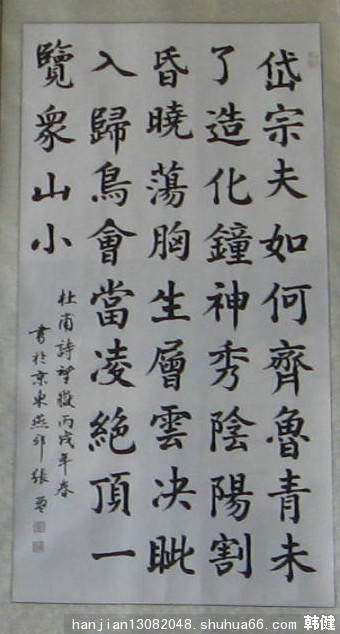 岱宗夫如何齊魯青未
了造化鐘神秀陰陽割
昏曉蕩胸生層雲决眦
入歸鳥會當凌絶頂一
覽衆山小
杜甫詩望嶽丙戌年春
書於京東燕郊張
hanjian13082048.shuhua66.com 韩健